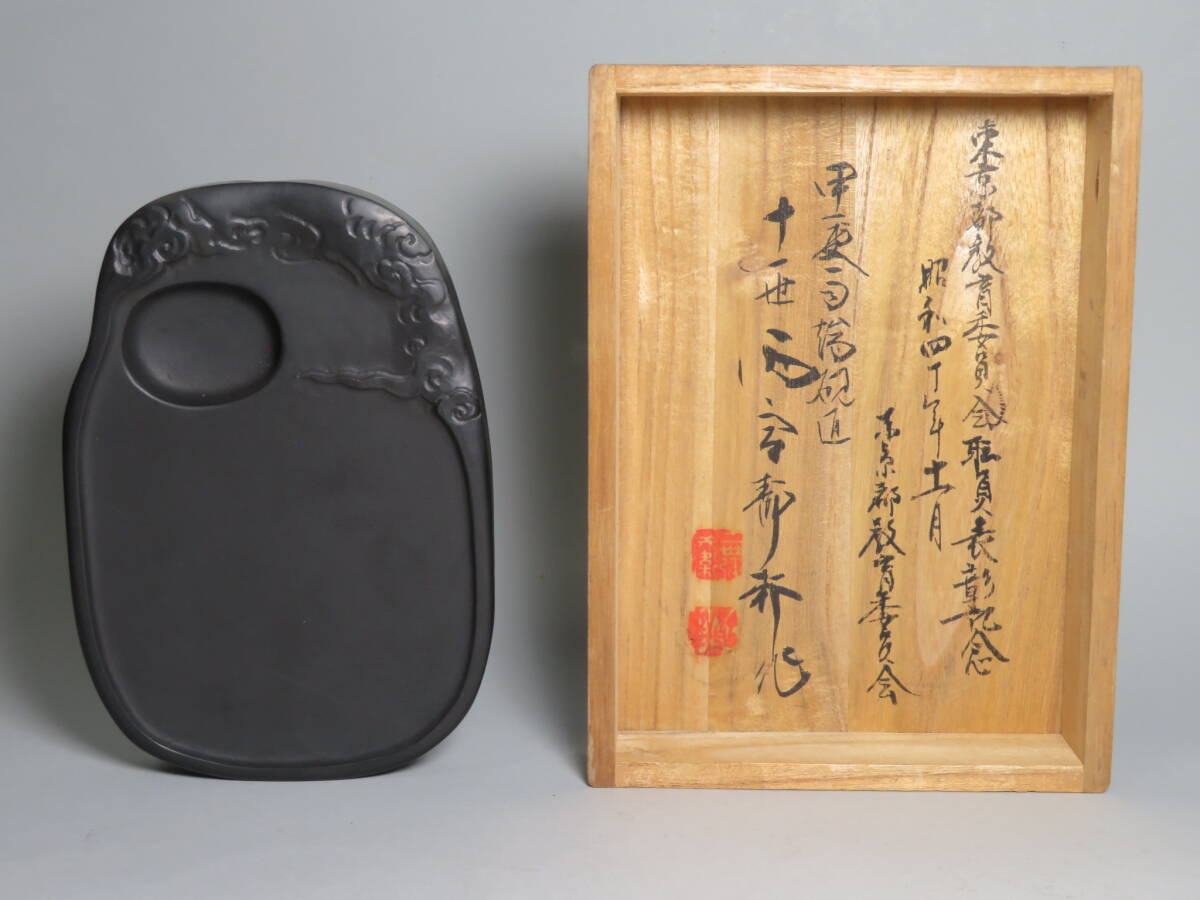 東京都教育委員会職員表彰記念
昭和四十年十一月
東京都教育委員会
甲斐雨端硯匠
十一世 雨宮静軒作